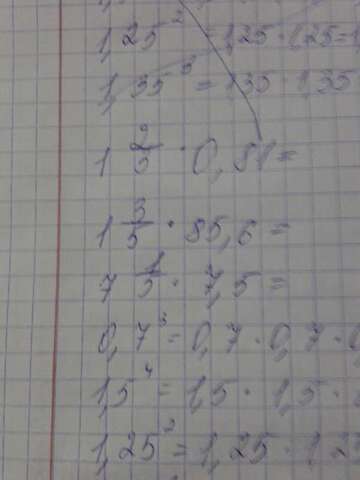 1,25² = 1,25 · 1,25 = 1
1,35³ = 1,35 · 1,35
1 2/5 · 0,81 =
1 3/5 · 85,6 =
7 1/5 · 7,5 =
0,7³ = 0,7 · 0,7 ·
1,5⁴ = 1,5 · 1,5 ·
1,25² = 1,25 · 1,25